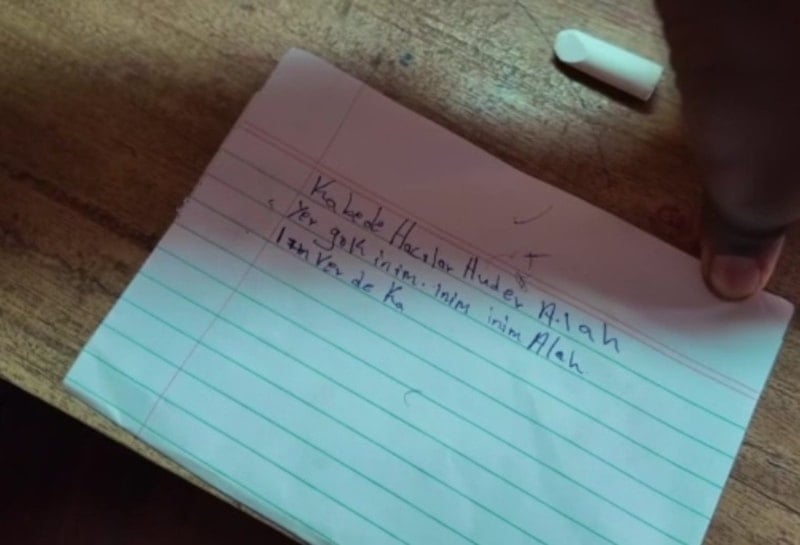 Kabede Hacılar Huder Alah
Yer gök inim. inim inim Alah
Izn Ver de Ka